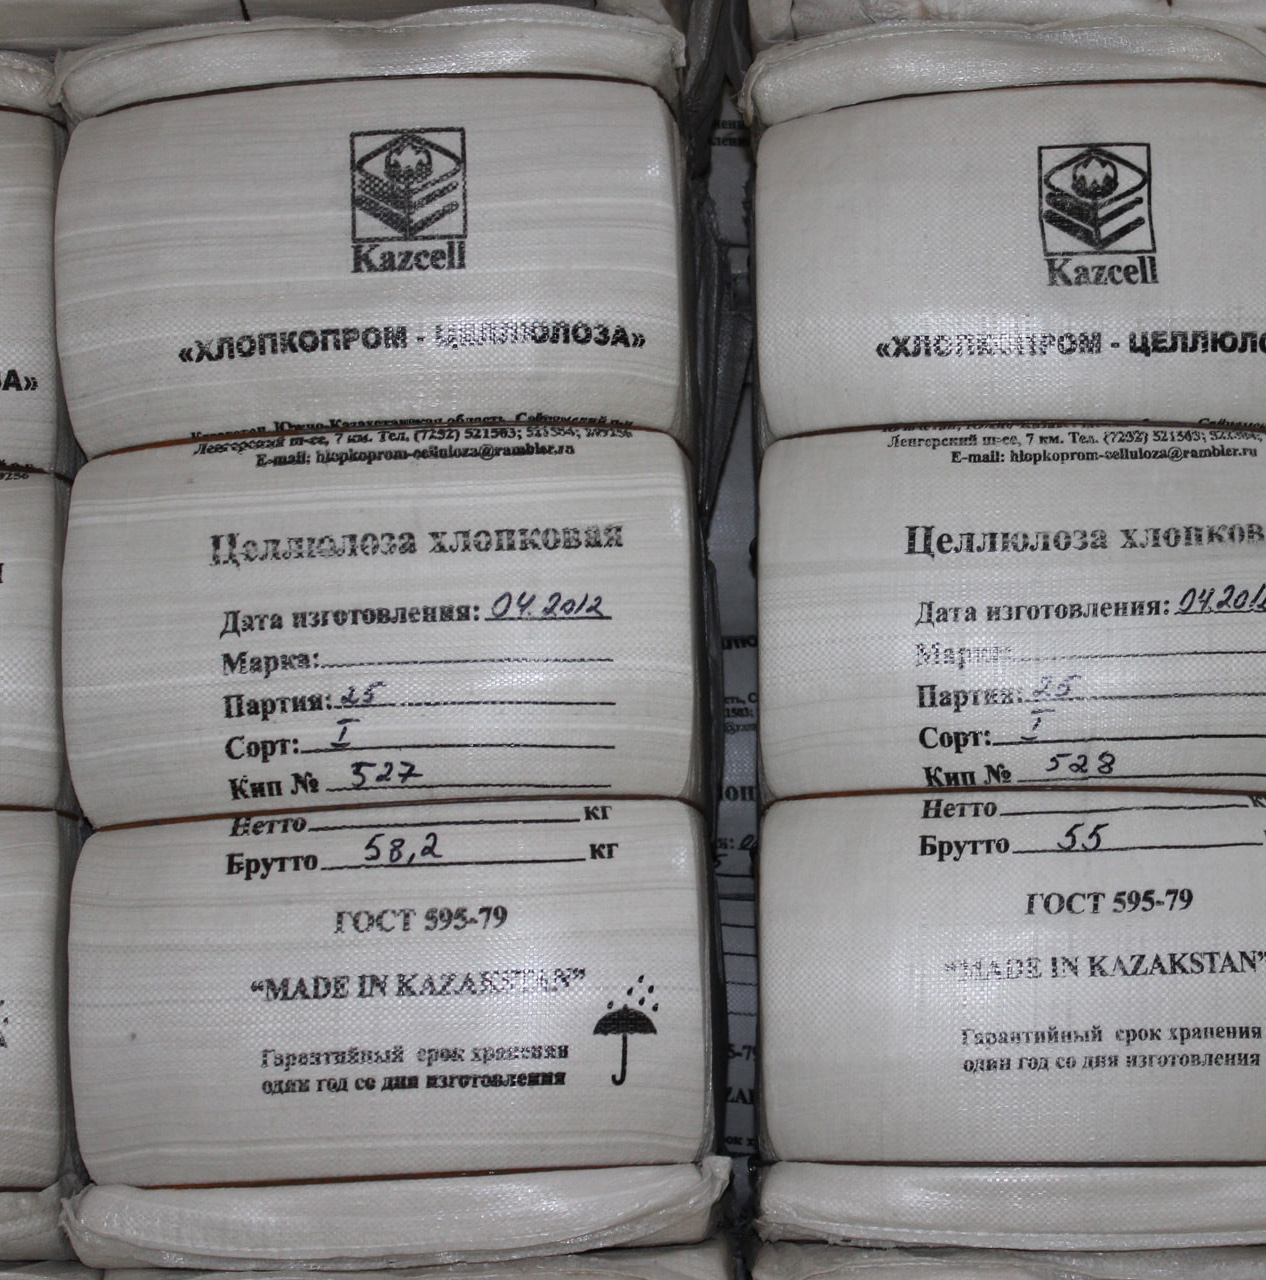 Kazcell
«ХЛОПКОПРОМ - ЦЕЛЛЮЛОЗА»
Южно-Казахстанская область,
Ленгерский ш-се, 7 км. Тел. (7252) 521563;
E-mail: hlopkoprom-celluloza@rambler.ru
Целлюлоза хлопковая
Дата изготовления: 04.2012
Марка:
Партия: 25
Сорт: I
Кип № 527
Нетто кг
Брутто 58,2 кг
ГОСТ 595-79
“MADE IN KAZAKSTAN”
Гарантийный срок хранения
один год со дня изготовления
Kazcell
«ХЛОПКОПРОМ - ЦЕЛЛЮЛО
Ленгерский ш-се, 7 км. Тел. (7252) 521563;
E-mail: hlopkoprom-celluloza@rambler.ru
Целлюлоза хлопков
Дата изготовления: 04.2012
Марка:
Партия: 25
Сорт: I
Кип № 528
Нетто
Брутто 55
ГОСТ 595-79
“MADE IN KAZAKSTAN”
Гарантийный срок хранения
один год со дня изготовления